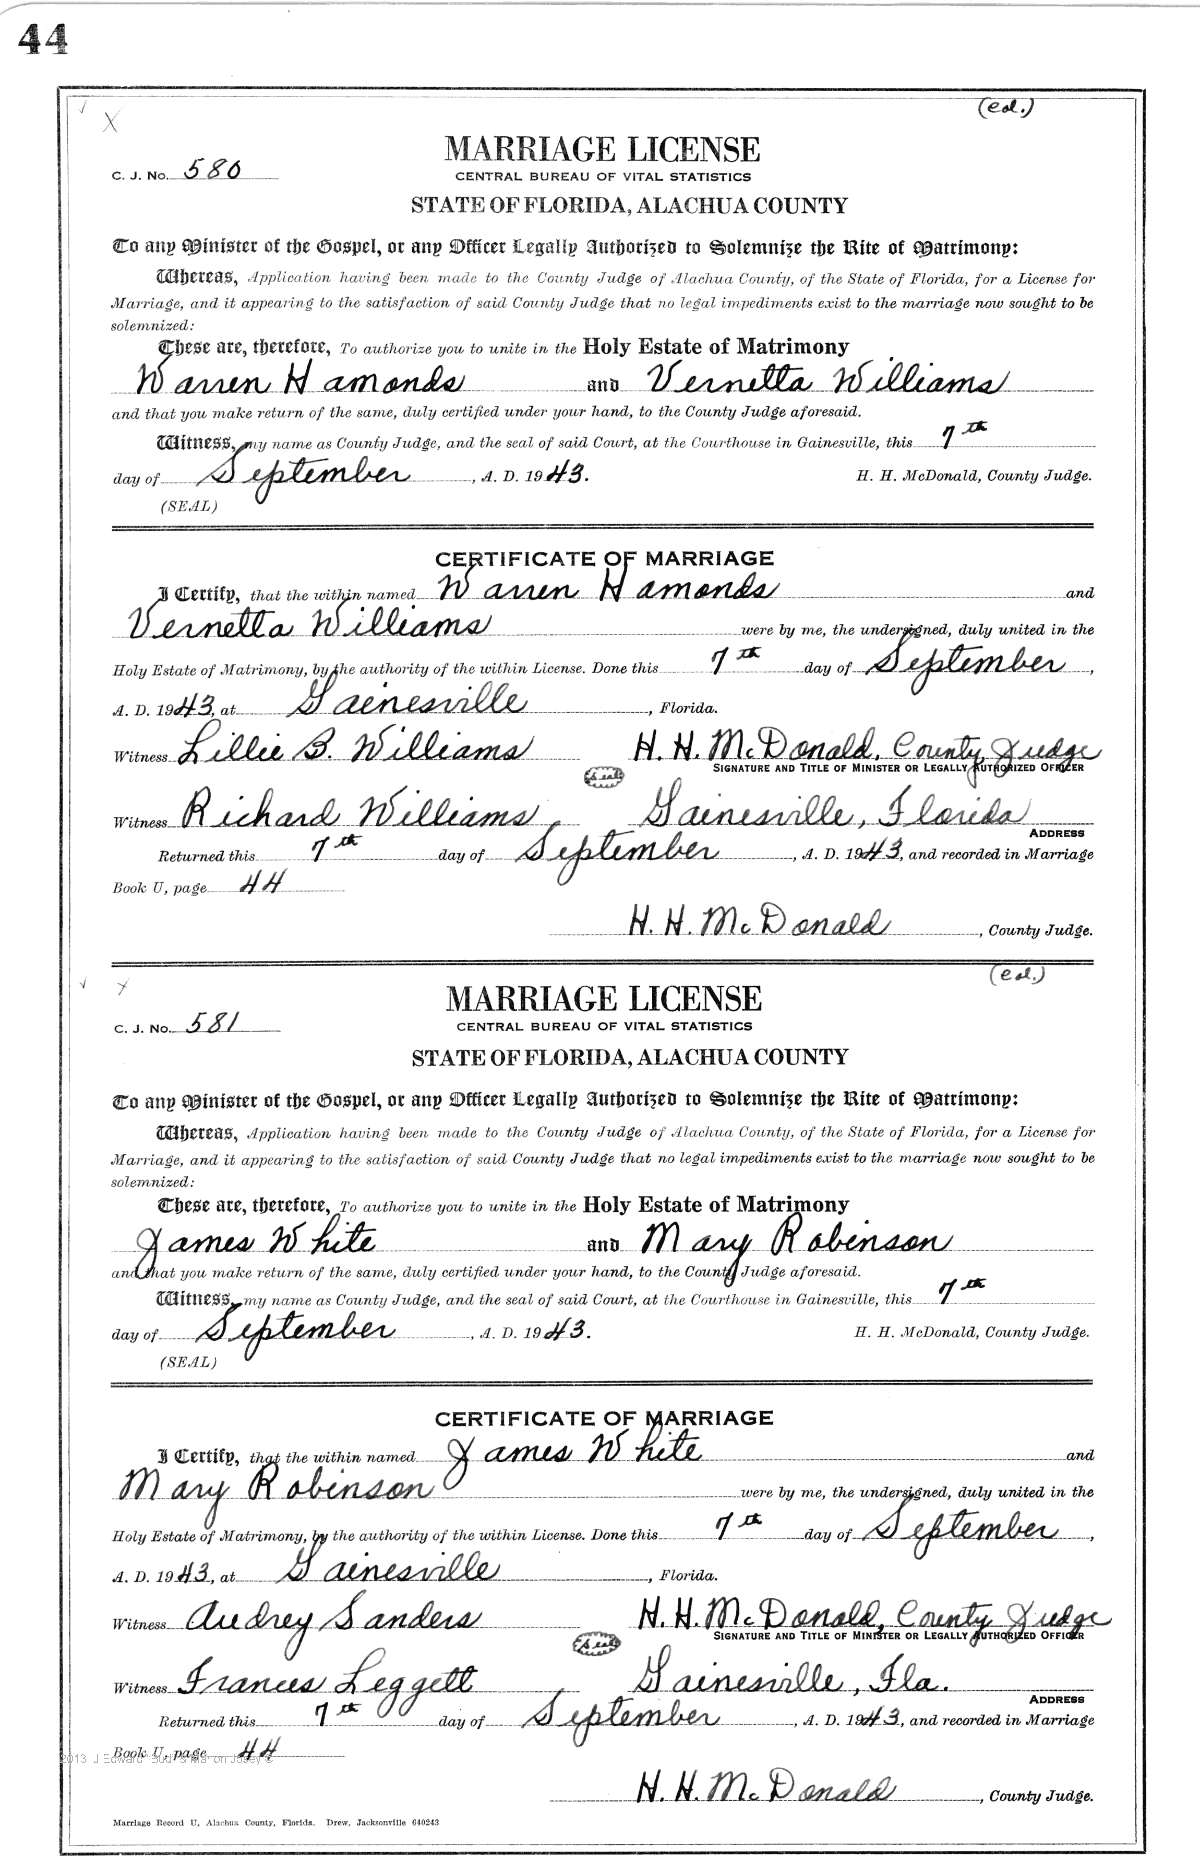 44
(col.)
X
MARRIAGE LICENSE
C. J. No. 580
CENTRAL BUREAU OF VITAL STATISTICS
STATE OF FLORIDA, ALACHUA COUNTY
To any Minister of the Gospel, or any Officer Legally Authorized to Solemnize the Rite of Matrimony:
Whereas, Application having been made to the County Judge of Alachua County, of the State of Florida, for a License for
Marriage, and it appearing to the satisfaction of said County Judge that no legal impediments exist to the marriage now sought to be
solemnized:
These are, therefore, To authorize you to unite in the Holy Estate of Matrimony
Warren Hamonds and Vernetta Williams
and that you make return of the same, duly certified under your hand, to the County Judge aforesaid.
Witness, my name as County Judge, and the seal of said Court, at the Courthouse in Gainesville, this 7th
day of September, A. D. 1943. H. H. McDonald, County Judge.
(SEAL)
CERTIFICATE OF MARRIAGE
I Certify, that the within named Warren Hamonds and
Vernetta Williams were by me, the undersigned, duly united in the
Holy Estate of Matrimony, by the authority of the within License. Done this 7th day of September,
A. D. 1943, at Gainesville, Florida.
Witness Lillie B. Williams H. H. McDonald, County Judge
SIGNATURE AND TITLE OF MINISTER OR LEGALLY AUTHORIZED OFFICER
Seal
Witness Richard Williams Gainesville, Florida
ADDRESS
Returned this 7th day of September, A. D. 1943, and recorded in Marriage
Book U, page 44
H. H. McDonald, County Judge.
(col.)
X
MARRIAGE LICENSE
C. J. No. 581
CENTRAL BUREAU OF VITAL STATISTICS
STATE OF FLORIDA, ALACHUA COUNTY
To any Minister of the Gospel, or any Officer Legally Authorized to Solemnize the Rite of Matrimony:
Whereas, Application having been made to the County Judge of Alachua County, of the State of Florida, for a License for
Marriage, and it appearing to the satisfaction of said County Judge that no legal impediments exist to the marriage now sought to be
solemnized:
These are, therefore, To authorize you to unite in the Holy Estate of Matrimony
James White and Mary Robinson
and that you make return of the same, duly certified under your hand, to the County Judge aforesaid.
Witness, my name as County Judge, and the seal of said Court, at the Courthouse in Gainesville, this 7th
day of September, A. D. 1943. H. H. McDonald, County Judge.
(SEAL)
CERTIFICATE OF MARRIAGE
I Certify, that the within named James White and
Mary Robinson were by me, the undersigned, duly united in the
Holy Estate of Matrimony, by the authority of the within License. Done this 7th day of September,
A. D. 1943, at Gainesville, Florida.
Witness Audrey Sanders H. H. McDonald, County Judge
SIGNATURE AND TITLE OF MINISTER OR LEGALLY AUTHORIZED OFFICER
Seal
Witness Frances Leggett Gainesville, Fla.
ADDRESS
Returned this 7th day of September, A. D. 1943, and recorded in Marriage
Book U, page 44
2013 J Edward
H. H. McDonald, County Judge.
Marriage Record U, Alachua County, Florida. Drew, Jacksonville 640243